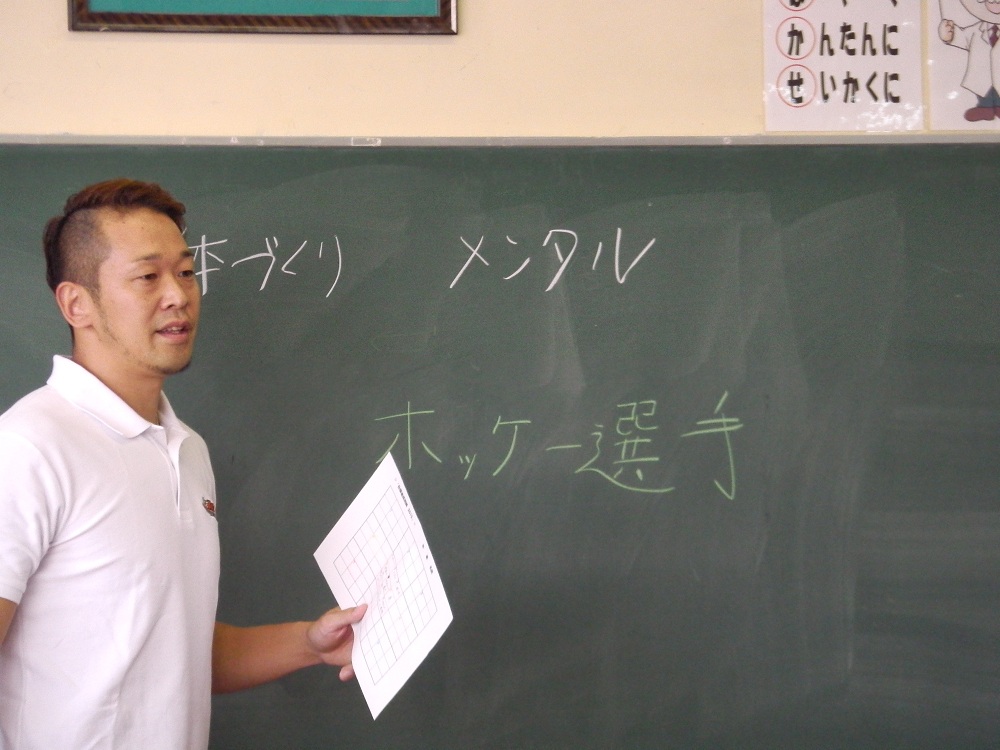 かんたんに
せいかくに
体づくり メンタル
ホッケー選手